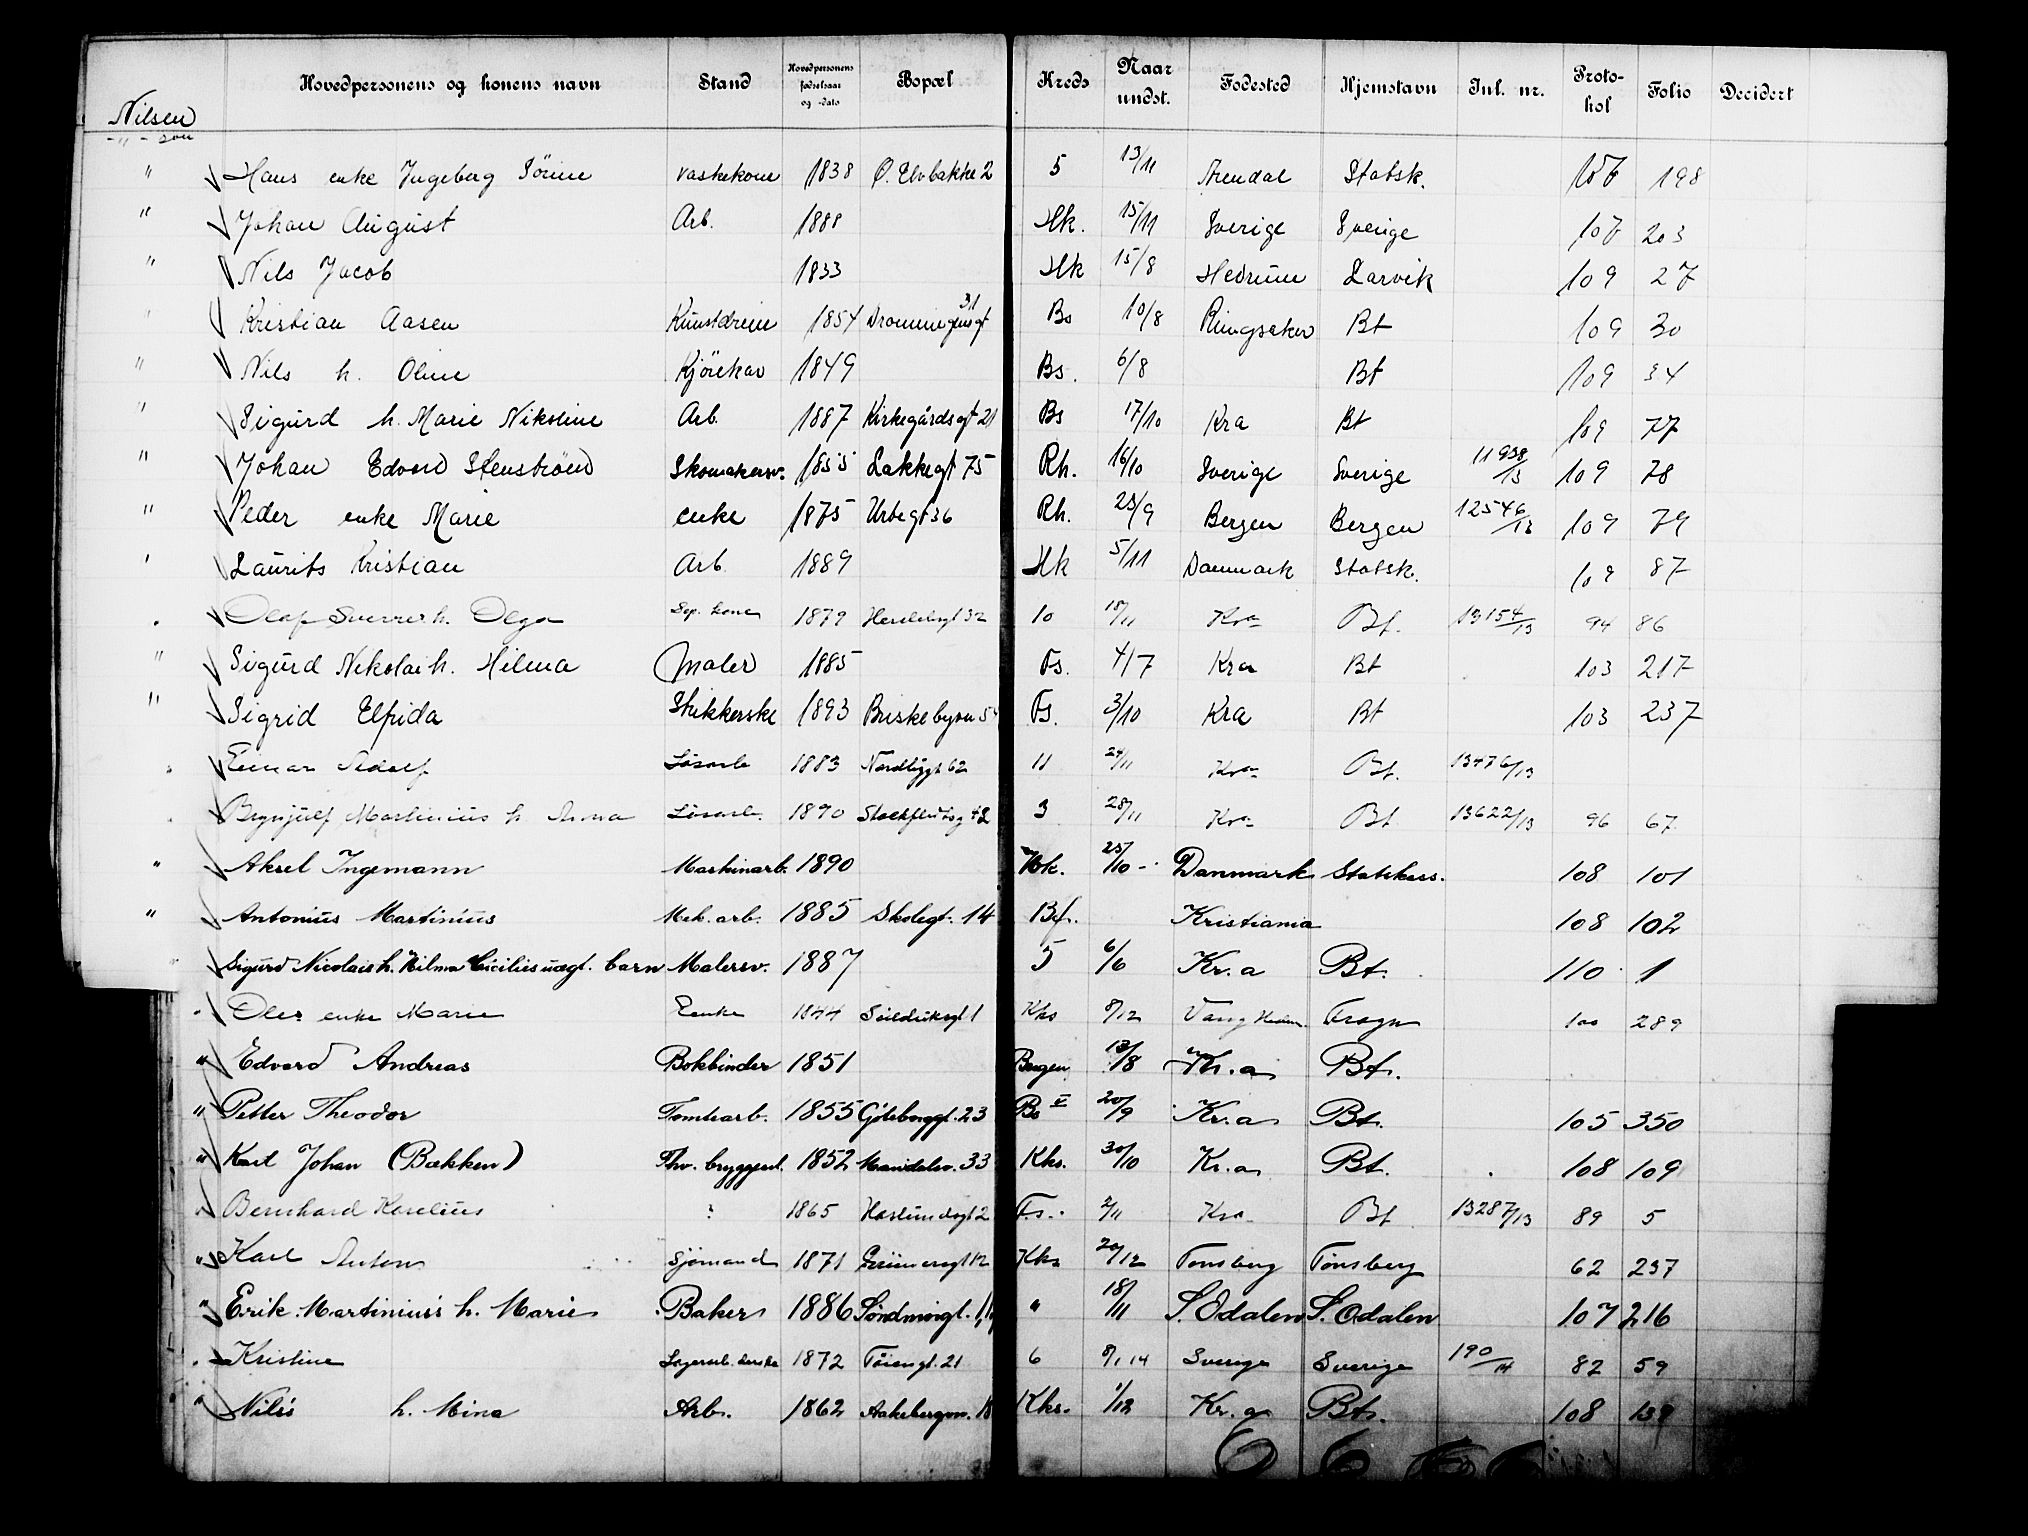 Hovedpersonens og konens navn Stand Hovedpersonens fødselsaar og -dato Bopæl Kreds Naar undst. Fødested Hjemstavn Jnl. nr. Protokol Folio Decidert
Nilsen
- " - son
" Hans enke Ingeborg Sörine vaskekone 1838 Ø. Elvbakke 2 5 13/11 Arendal Statsk. 107 198
" Johan August Arb. 1888 Hk. 15/11 Sverige Sverige 107 203
" Nils Jacob 1833 Hk 15/8 Hedrum Larvik 109 27
" Kristian Aasen Kunstdreier 1854 31 Bs 10/8 Ringsaker Bt 109 30
" Nils h. Oline Kjörekar 1849 Bs. 6/8 Bt 109 34
" Sigurd h. Marie Nikoline Arb. 1887 Kirkegårdsgt 21 Bs 17/10 Kra Bt 109 77
" Johan Edvard Stenström Skomakersv. 1855 Lakkegt 75 Rh. 16/10 Sverige Sverige 11938/13 109 78
" Peder enke Marie enke 1875 Urbegt 36 Rh. 23/9 Bergen Bergen 12546/13 109 79
" Laurits Kristian Arb. 1889 Hk 5/11 Danmark Statsk. 109 87
" Olaf Sverre h. Olga Sep. kone 1879 Herslebsgt 32 10 18/11 Kra Bt. 13154/13 94 86
" Sigurd Nikolai h. Hilma Maler 1885 Fs. 4/7 Kra Bt 103 217
" Sigrid Elfrida Strikkerske 1893 Briskebyvn 5 Fs. 3/10 Kra Bt 103 237
" Einar Adolf Løsarb 1883 Nordbygt 62 11 24/11 Kra Bt. 13476/13
" Brynjulf Martinius h Anna Løsarb. 1890 Stockfletsg 42 3 28/11 Kra Bt 13622/13 96 67
" Aksel Ingemann Maskinarb. 1890 Hk. 25/10 - Danmark Statskass. 108 101
" Antonius Martinius Mek. arb. 1885 Skolegt. 14 Bf. Kristiania 108 102
Sigurd Nicolais h. Hilma Cicilies uægt. barn Malersv. 1887 5 6/6 Kr.a Bt. 110 1
" Oles enke Marie Eenke 1844 Seilduksgt 1 Khs 8/12 Vang Hedm. Frogn 100 289
" Edvard Andreas Bokbinder 1851 Bergen 13/8 Kr.a Bt.
" Petter Theodor Tomtearb. 1855 Göteborggt. 23 Bs V 20/9 Kr.a Bt. 105 350
" Karl Johan (Bakken) Fhv. bryggearb. 1852 Maridalsv. 33 Khs. 30/10 Kr.a Bt. 108 109
" Bernhard Karelius ? 1865 Haslundsgt 2 Fs. 2/11 Kra Bt 13287/13 89 5
" Karl Anton Sjømand 1871 Grünersgt 12 Khs 20/12 Tønsberg Tønsberg 62 237
" Erik Martinius's h. Marie Baker 1886 Söndmørgt. " 18/11 S. Odalen S. Odalen 107 216
" Kristine Lagerarb.erske 1872 Tøiengt. 21 6 8/1 14 Sverige Sverige 190/14 82 59
" Nils's h. Mina Arb. 1862 Aakebergvn. 18 Khs. 1/12 Kr.a Bt. 108 139